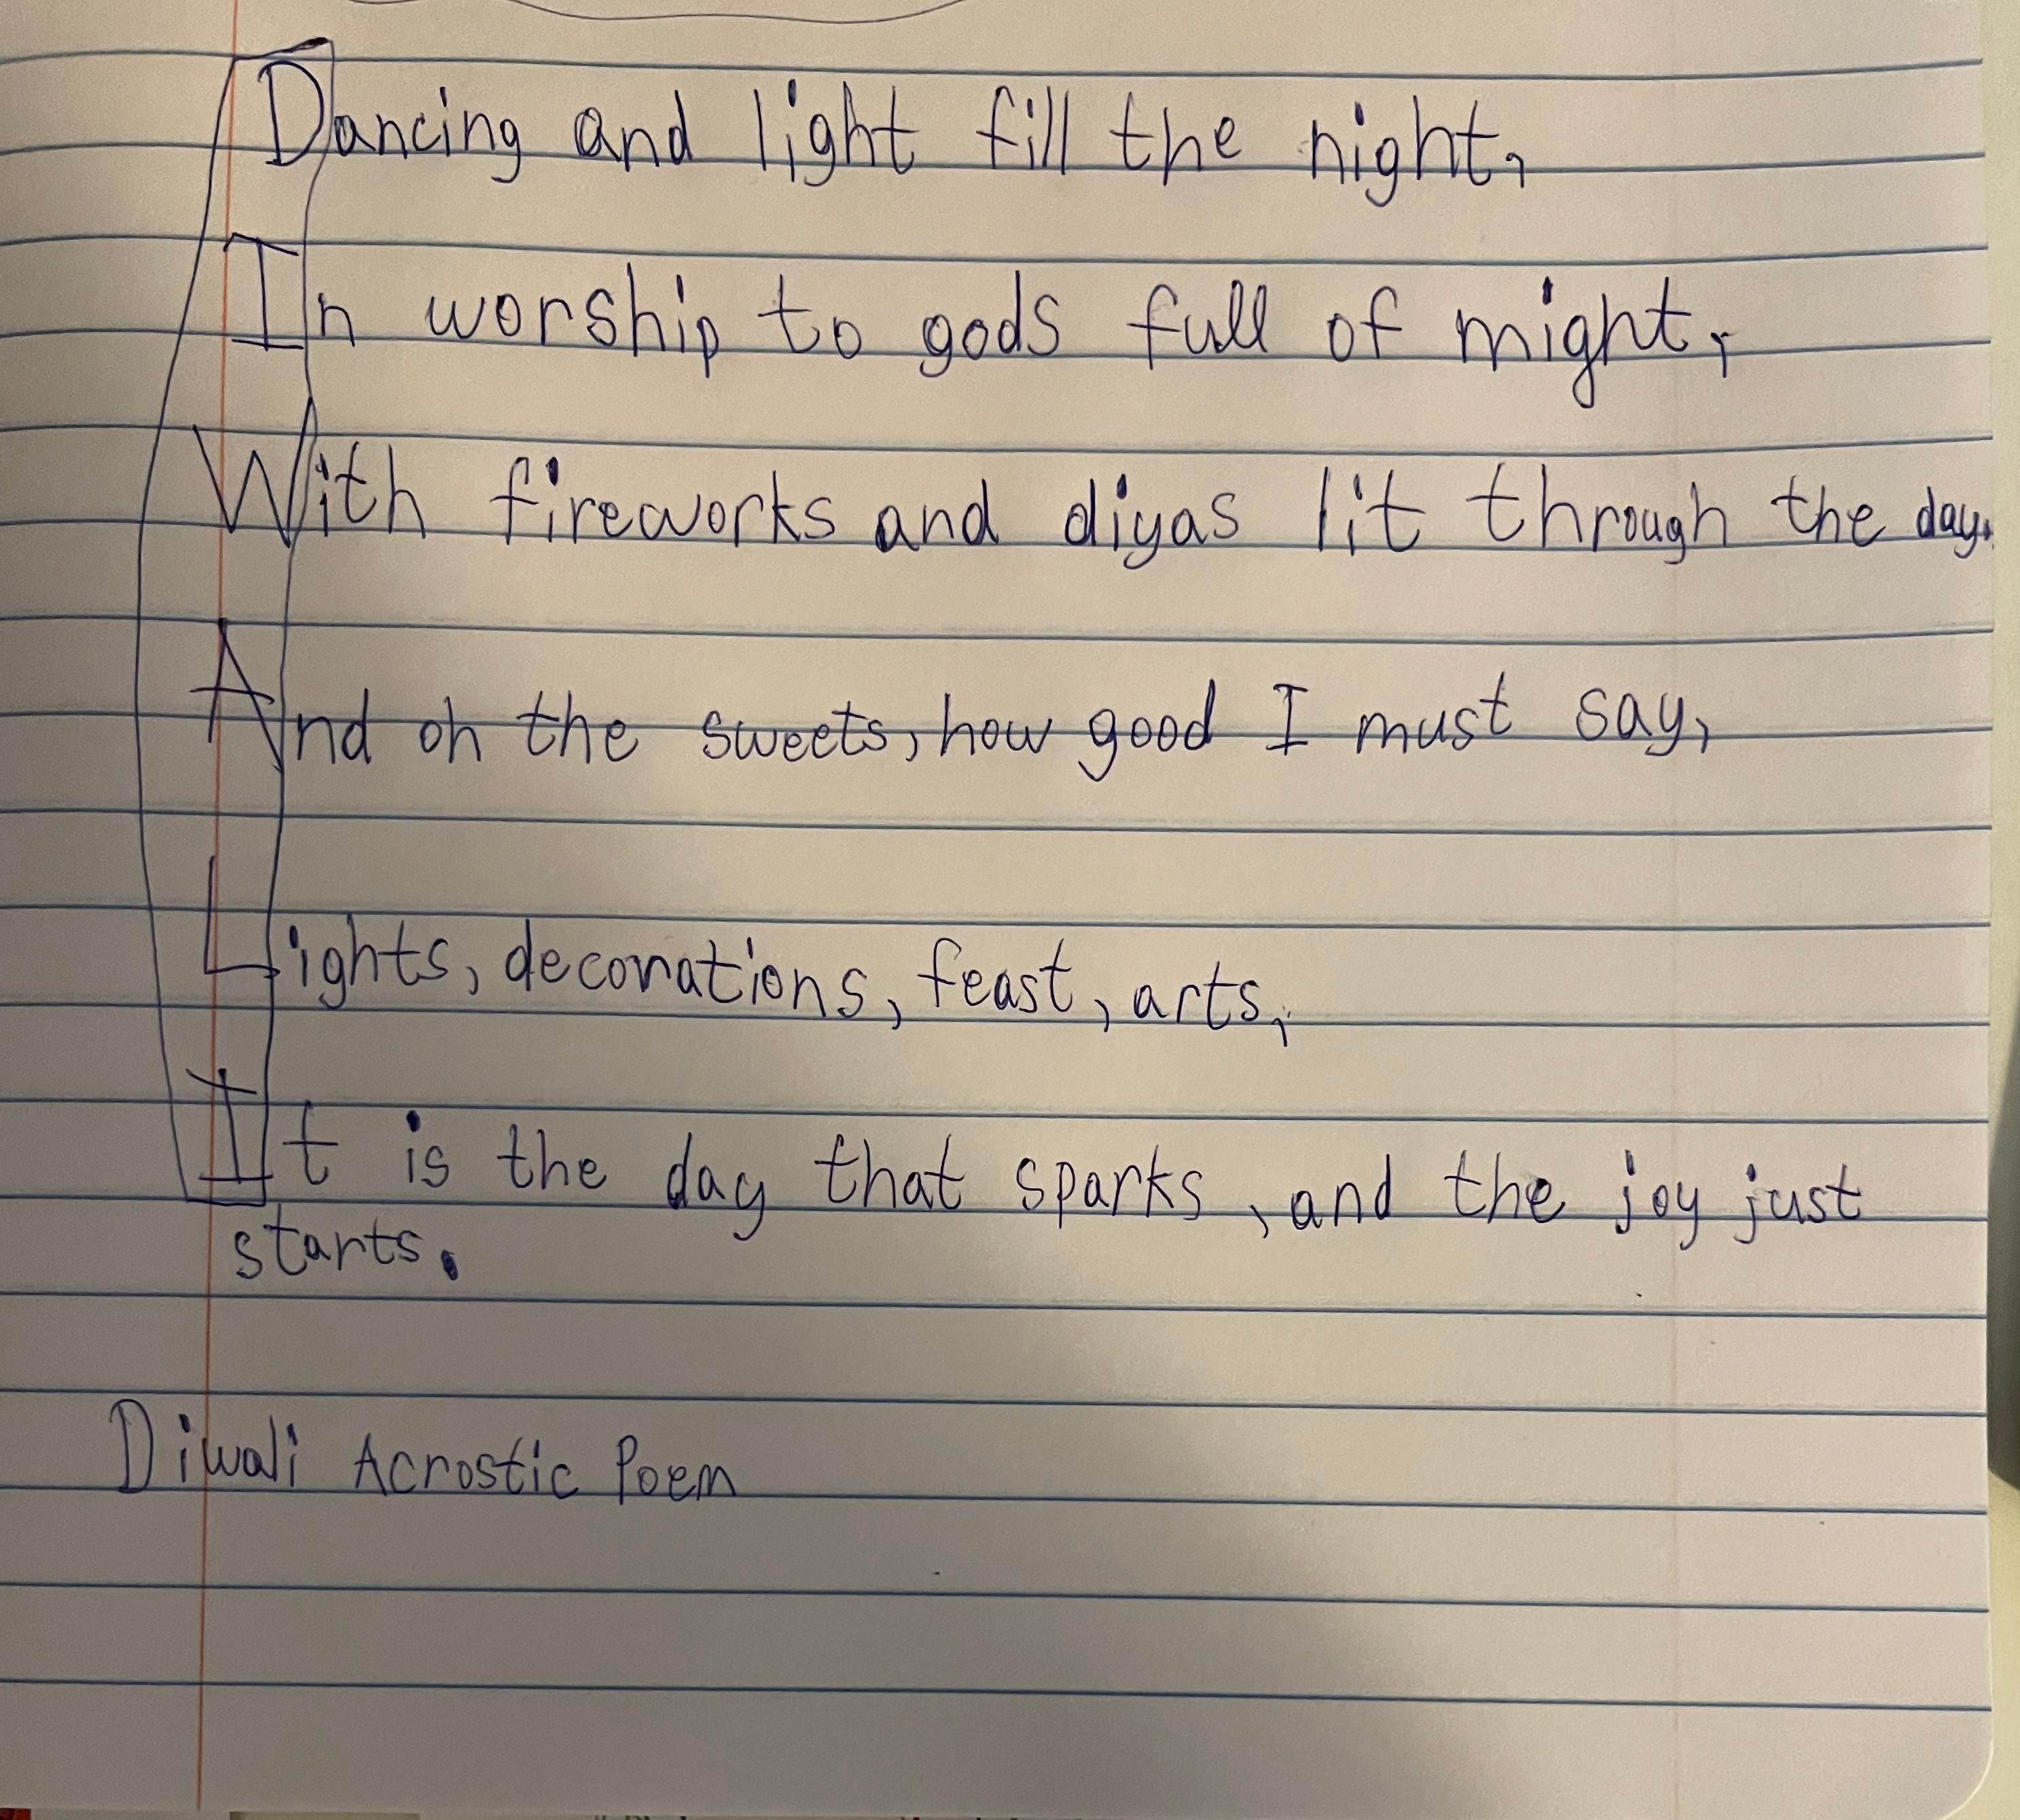 Dancing and light fill the night,
In worship to gods full of might,
With fireworks and diyas lit through the day.
And oh the sweets, how good I must say,
Lights, deconations, feast, arts,
It is the day that sparks, and the joy just
starts.
Diwali Acrostic Poem